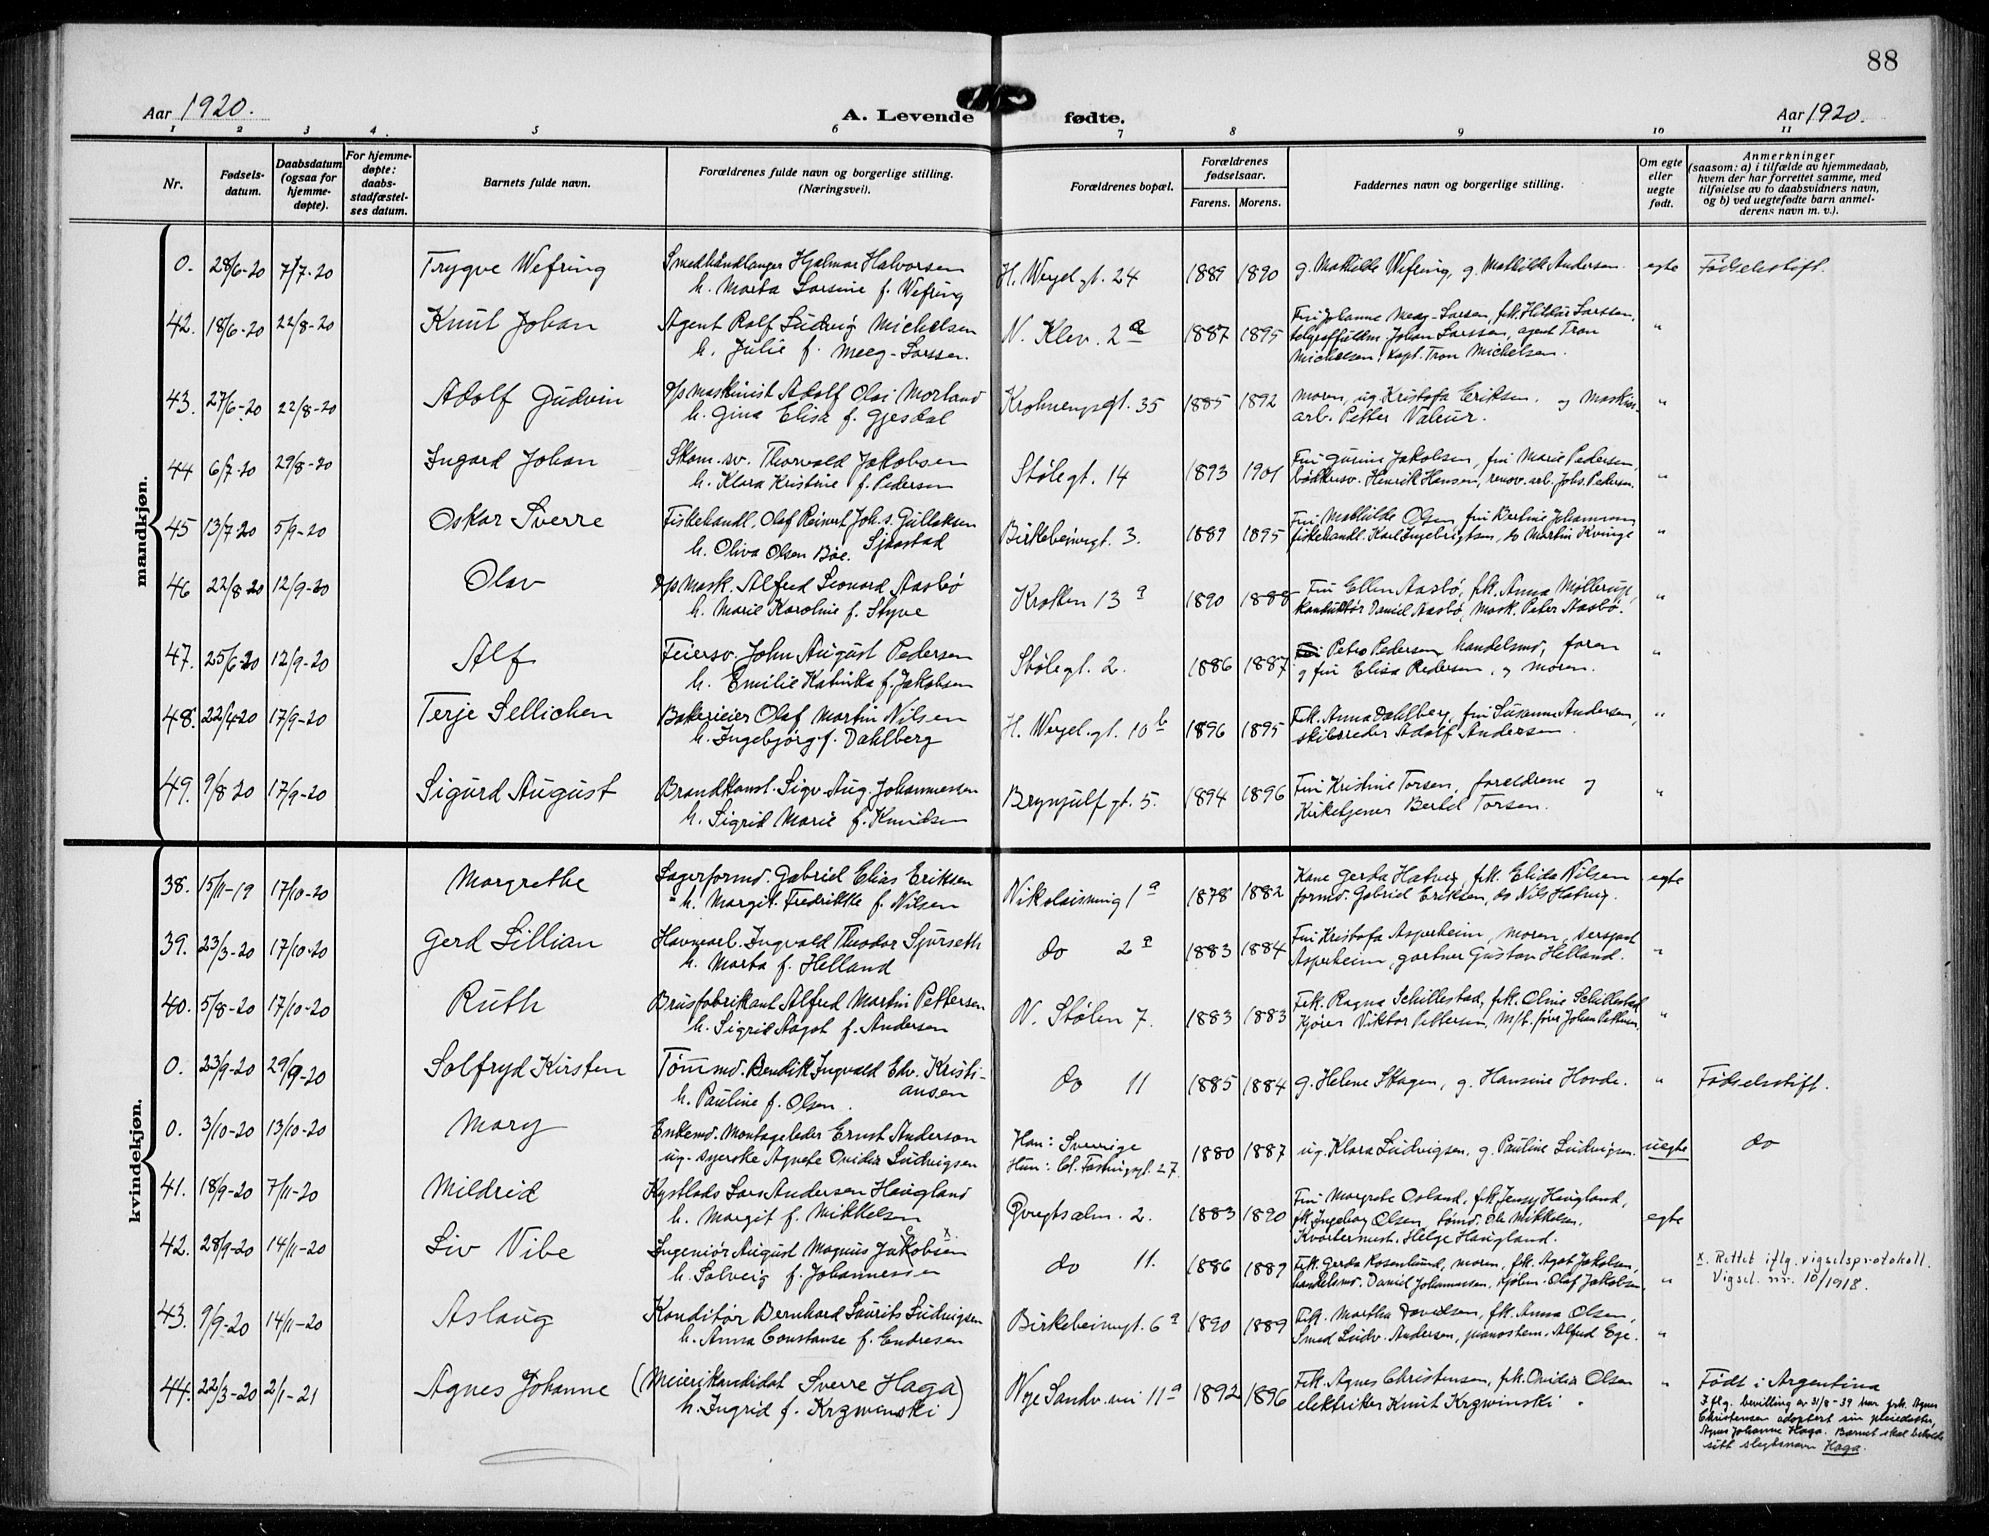 88
Aar 1920.
A. Levende fødte.
Aar 1920.
1 2 3 4. 5 6 7 8 9 10 11
Nr.
Fødsels-
datum.
Daabsdatum
(ogsaa for
hjemme-
døpte).
For hjemme-
døpte:
daabs-
stadfæstel-
ses datum.
Barnets fulde navn.
Forældrenes fulde navn og borgerlige stilling.
(Næringsvei).
Forældrenes bopæl.
Forældrenes
fødselsaar.
Farens. Morens.
Faddernes navn og borgerlige stilling.
Om egte
eller
uegte
født.
Anmerkninger
(saasom: a) i tilfælde av hjemmedaab,
hvem der har forrettet samme, med
tilføielse av to daabsvidners navn,
og b) ved uegtefødte barn anmel-
derens navn m. v.).
mandkjøn.
0. 28/6-20 7/7-20 Trygve Wefring Smedhåndlanger Hjalmar Halvorsen H. Wergel.gt. 24 1889 1890 g. Mathilde Wefring, g. Mathilde Andersen. egte Fødselsstift.
h. Marta Larsine f. Wefring
42. 18/6-20 22/8-20 Knut Johan Agent Rolf Ludvig Michelsen N. Klev. 2a 1887 1895 Fru Johanne Meeg-Larsen, frk. Hildur Larssen, "
h. Julie f. Meeg-Larssen. Johan Larssen, agent Tron
Michelsen, kapt. Tron Michelsen.
43. 27/6-20 22/8-20 Adolf Gudvin d/s maskinist Adolf Olai Morland Krohnengsgt. 35 1885 1892 moren, ug. Kristofa Eriksen. og maskin- "
h. Gina Elisa f. Gjesdal arb. Petter Valeur.
44 6/7-20 29/8-20 Ingard Johan Skom.sv. Thorvald Jakobsen Stølegt. 14 1893 1901 Fru Gurine Jakobsen, fru Marie Pedersen, "
h. Klara Kristine f. Pedersen bødkersv. Henrik Hansen, renov. arb. Johs. Pedersen.
45 13/7-20 5/9-20 Oskar Sverre Fiskehandl. Olaf Reinert Joh.s. Gullaksen Birkebeinergt. 3. 1889 1895 Fru Mathilde Olsen, fru Bertine Johannessen "
h. Oliva Olsen Bøe. Sjøastad fiskehandl. Karl Ingebrigtsen, do Martin Kvinge
46 22/8-20 12/9-20 Olav d/s Mask. Alfred Leonard Aasbø Krotten 13 a 1890 1888 Fru Ellen Aasbø, frk. Anna Møllerup, "
h. Marie Karoline f. Styve konduktør Daniel Aasbø, Mask. Peter Aasbø.
47. 25/6-20 12/9-20 Alf Feiersv. John August Pedersen Stølegt. 2. 1886 1887 Petro Pedersen handelsmd, faren "
h. Emilie Katinka f. Jakobsen og fru Elisa Pedersen, og moren.
48. 22/4-20 17/9-20 Terje Sellichen Bakerieier Olaf Martin Nilsen H. Wergel.gt. 10 b 1896 1895 Frk. Anna Dahlberg, fru Susanne Andersen, "
h. Ingebjørg f. Dahlberg skibsreder Adolf Andersen.
49. 9/8 20 17/9-20 Sigurd August Brandkonst. Sigv. Aug. Johannessen Brynjulfgt. 5. 1894 1896 Fru Kristine Torsen, foreldrene og "
h. Sigrid Marie f. Knudsen Kirketjener Bertel Torsen.
kvindekjøn.
38. 15/11-19 17/10-20 Margrethe Lagerformd. Gabriel Elias Eriksen Nikolaismug 1 a 1878 1882 Kone Gerda Hatvig, frk. Elida Nilsen egte
h. Margit Fredrikke f. Nilsen formd. Gabriel Eriksen, do Nils Hatvig.
39. 23/3-20 17/10-20 Gerd Lillian Havnearb. Ingvald Theodor Sjurseth do 2 a 1883 1884 Fru Kristofa Asperheim, moren, "
h. Marta f. Helland Asperheim, gartner Gustav Helland.
40. 5/8-20 17/10-20 Ruth Brusfabrikant Alfred Martin Pettersen N. Stølen 7. 1883 1883 Frk. Ragna Schillestad, frk. Oline Schillestad "
h. Sigrid Aagot f. Andersen Kjører Viktor Pettersen, M/b. fører Johan Pettersen,
0. 23/9-20 29/9-20 Solfryd Kirsten Tømmd. Bendik Ingvald Edv. Kristi- do 11 1885 1884 g. Helene Skagen, g. Hansine Hovde. " Fødselsstift.
h. Pauline f. Olsen. ansen
0. 3/10-20 13/10-20 Mary Enkemd. Montageleder Ernst Anderson Han: Sverige 1880 1887 ug. Klara Ludvigsen, g. Pauline Ludvigsen. uegte do
ug. syerske Agnete Ovidia Ludvigsen Hun: Cl. Fastingsgt. 27
41. 18/9-20 7/11-20 Mildrid Kystlods Lars Andersen Haugland Øvregtsalm. 2. 1883 1890 Fru Margrete Osland, frk. Jenny Haugland, egte
h. Margit f. Mikkelsen frk. Ingeborg Olsen, tømd. Ole Mikkelsen.
Kvartermest. Helge Haugland.
42. 28/9-20 14/11-20 Liv Vibe Ingeniør August Magnus Jakobsen x. do 11. 1886 1889 Frk. Gerda Rosenlund, moren, frk. Agot Jakobsen, " x. Rettet iflg. vigselsprotokoll.
h. Solveig f. Johannessen handelsmd. Daniel Johannessen, kjøbm. Olaf Jakobsen Vigsel. nr. 10/1918.
43. 9/9-20 14/11-20 Aslaug Konditør Bernhard Laurits Ludvigsen Birkebeinergt. 6 a 1890 1889 Frk. Martha Davidsen, frk. Anna Olsen, "
h. Anna Constanse f. Endresen Smed Ludv. Andersen, pianostem. Alfred Ege.
44. 22/3-20 2/1-21 Agnes Johanne (Meierikandidat Sverre Haga) Nye Sandv.vei 11 a 1892 1896 Frk. Agnes Christensen, frk. Ovidia Olsen " Født i Argentina
h. Ingrid f. Krzwinski) elektriker Knut Krzwinski . Iflg. bevilling av 31/8-39 har frk. Agnes
Christensen adoptert sin pleiedatter,
Agnes Johanne Haga. Barnet skal beholde
sitt slegtsnavn Haga.